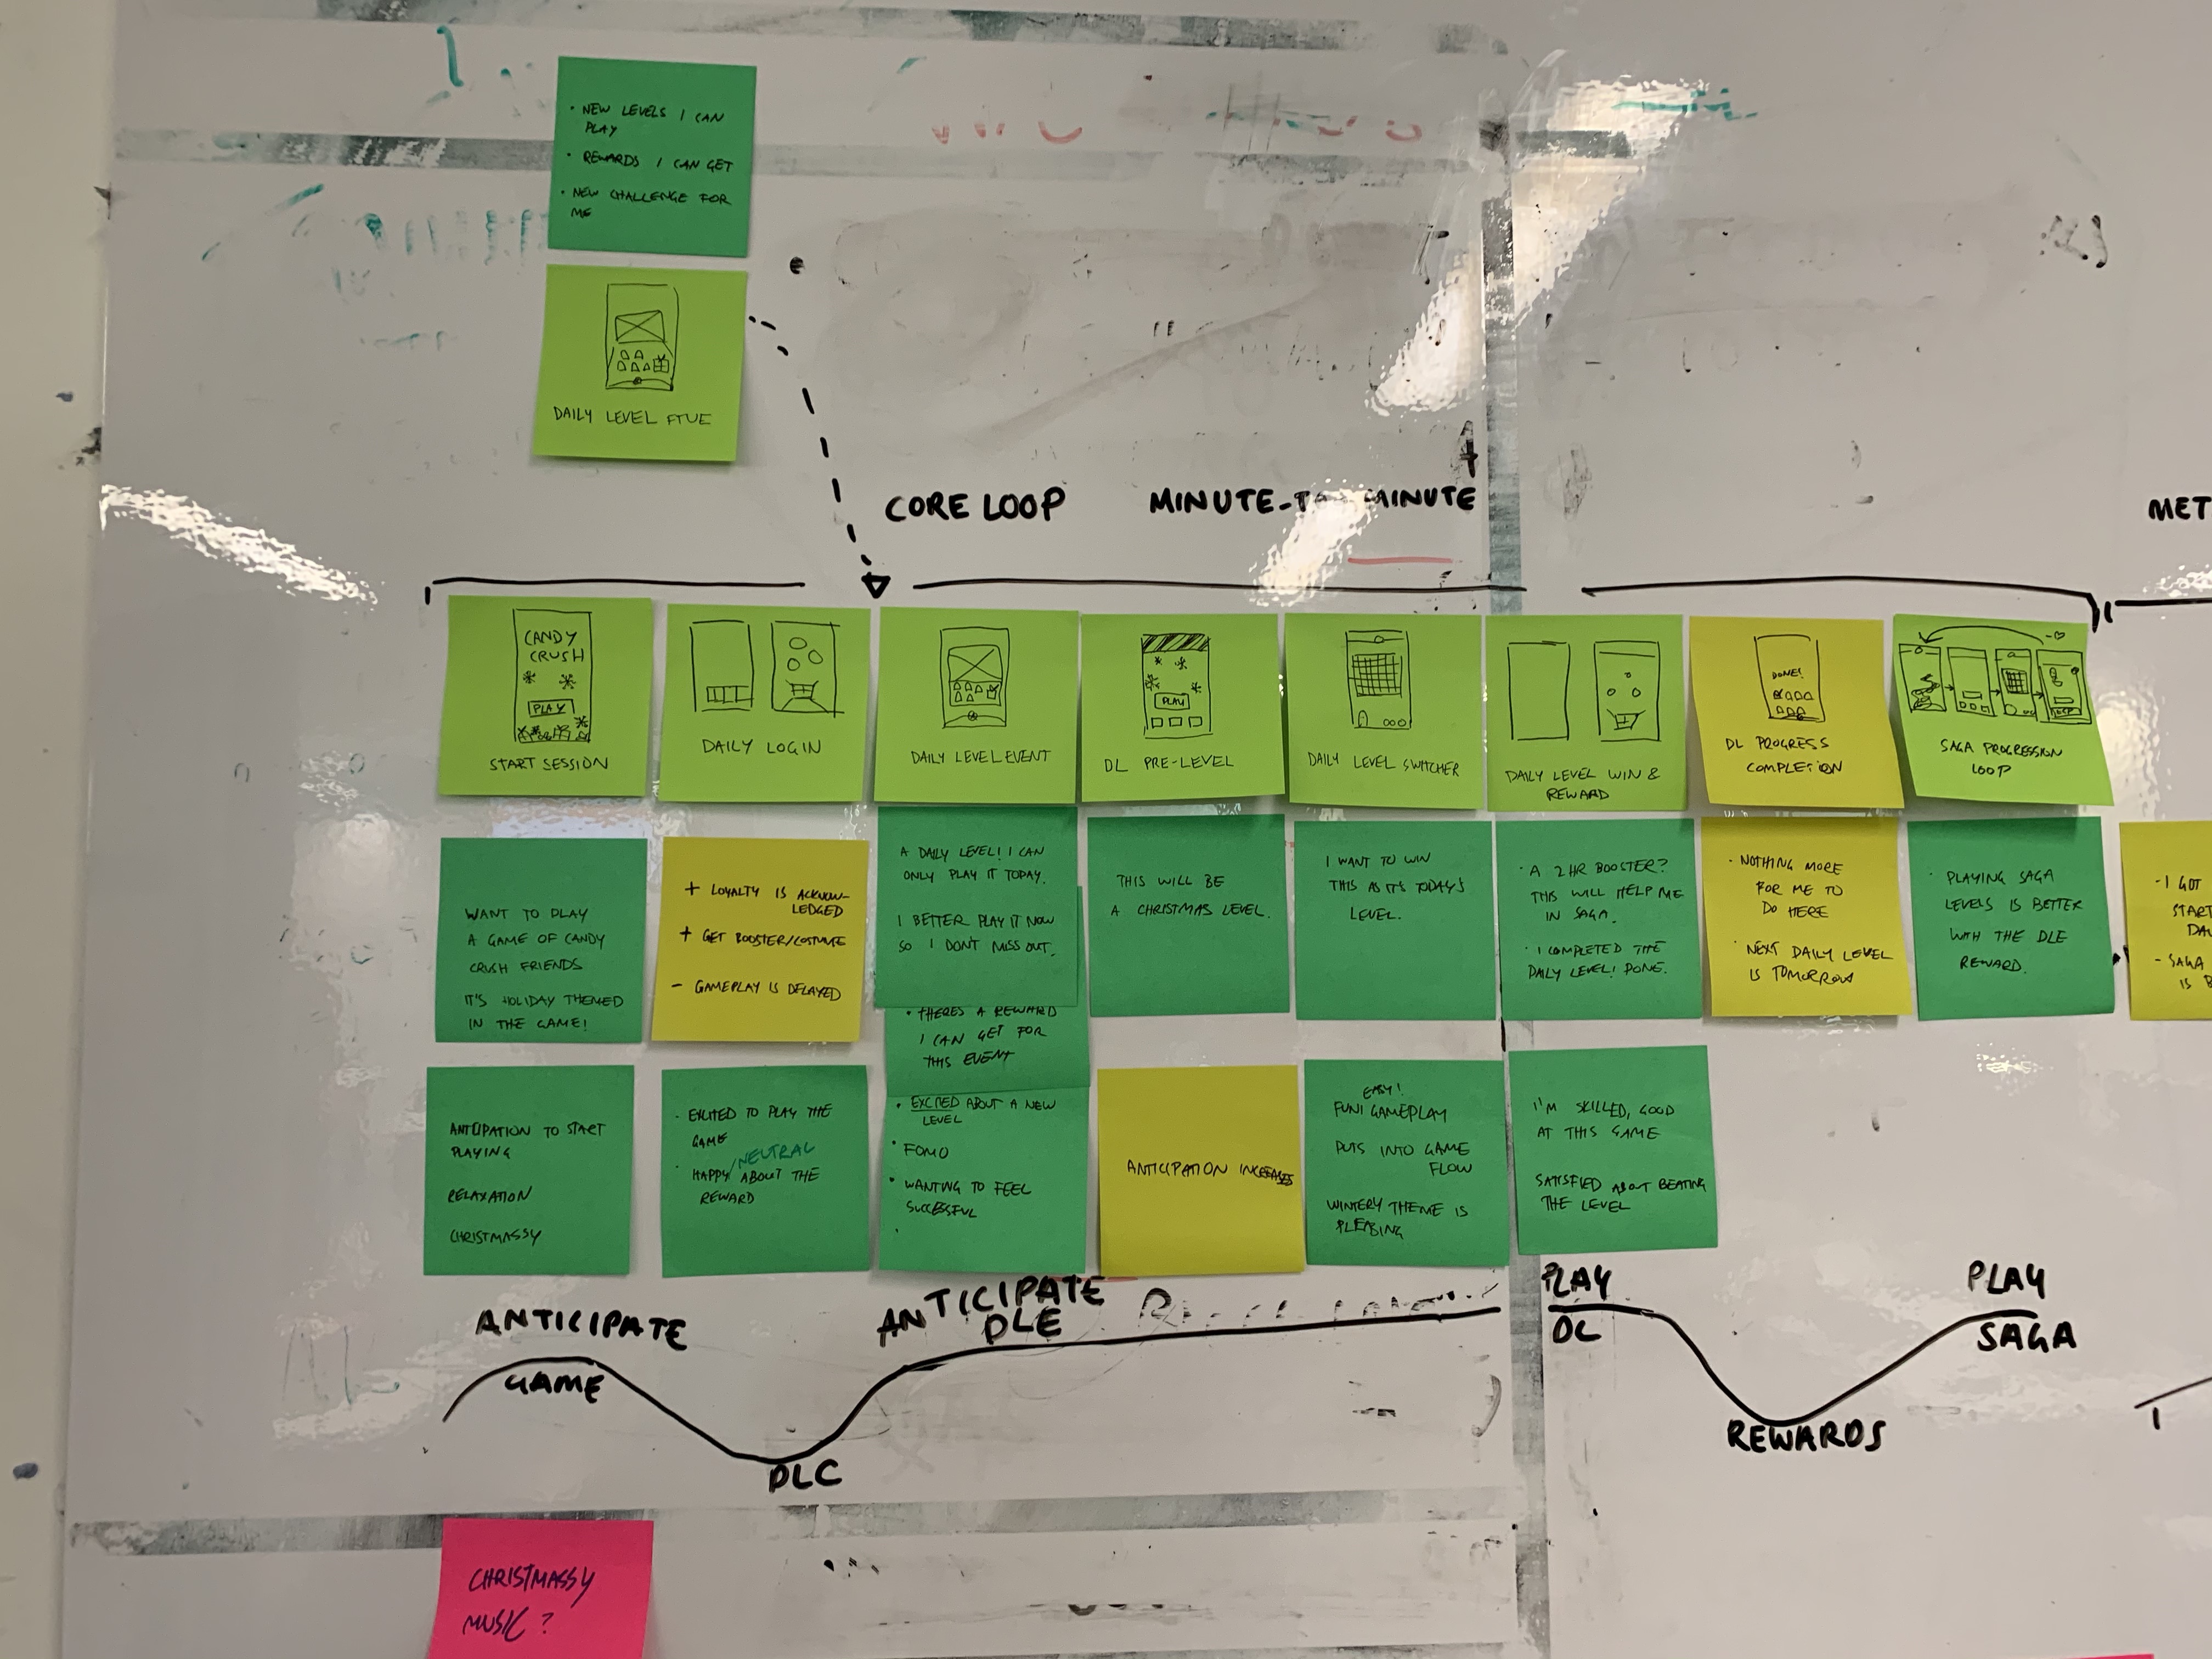 • NEW LEVELS I CAN
PLAY
• REWARDS I CAN GET
• NEW CHALLENGE FOR
ME
DAILY LEVEL FTUE
CORE LOOP
MINUTE-TO-MINUTE
MET
CANDY
CRUSH
PLAY
START SESSION
DAILY LOGIN
DAILY LEVEL EVENT
PLAY
DL PRE-LEVEL
DAILY LEVEL SWITCHER
DAILY LEVEL WIN &
REWARD
DONE!
DL PROGRESS
COMPLETION
SAGA PROGRESSION
LOOP
WANT TO PLAY
A GAME OF CANDY
CRUSH FRIENDS
IT'S HOLIDAY THEMED
IN THE GAME!
+ LOYALTY IS ACKNOW-
LEDGED
+ GET BOOSTER/COSTUME
- GAMEPLAY IS DELAYED
A DAILY LEVEL! I CAN
ONLY PLAY IT TODAY.
I BETTER PLAY IT NOW
SO I DON'T MISS OUT.
• THERES A REWARD
I CAN GET FOR
THIS EVENT
THIS WILL BE
A CHRISTMAS LEVEL.
I WANT TO WIN
THIS AS IT'S TODAY'S
LEVEL.
• A 2HR BOOSTER?
THIS WILL HELP ME
IN SAGA.
• I COMPLETED THE
DAILY LEVEL! DONE.
• NOTHING MORE
FOR ME TO
DO HERE
• NEXT DAILY LEVEL
IS TOMORROW
• PLAYING SAGA
LEVELS IS BETTER
WITH THE DLE
REWARD.
- I GOT
START
DA
- SAGA
IS B
ANTIPATION TO START
PLAYING
RELAXATION
CHRISTMASSY
• EXCITED TO PLAY THE
GAME
• HAPPY/NEUTRAL ABOUT THE
REWARD
• EXCITED ABOUT A NEW
LEVEL
• FOMO
• WANTING TO FEEL
SUCCESSFUL
•
ANTICIPATION INCREASES
EASY!
FUN! GAMEPLAY
PUTS INTO GAME
FLOW
WINTERY THEME IS
PLEASING
I'M SKILLED, GOOD
AT THIS GAME
SATISFIED ABOUT BEATING
THE LEVEL
ANTICIPATE
GAME
DLC
ANTICIPATE
DLE
PLAY
DL
REWARDS
PLAY
SAGA
CHRISTMASSY
MUSIC?